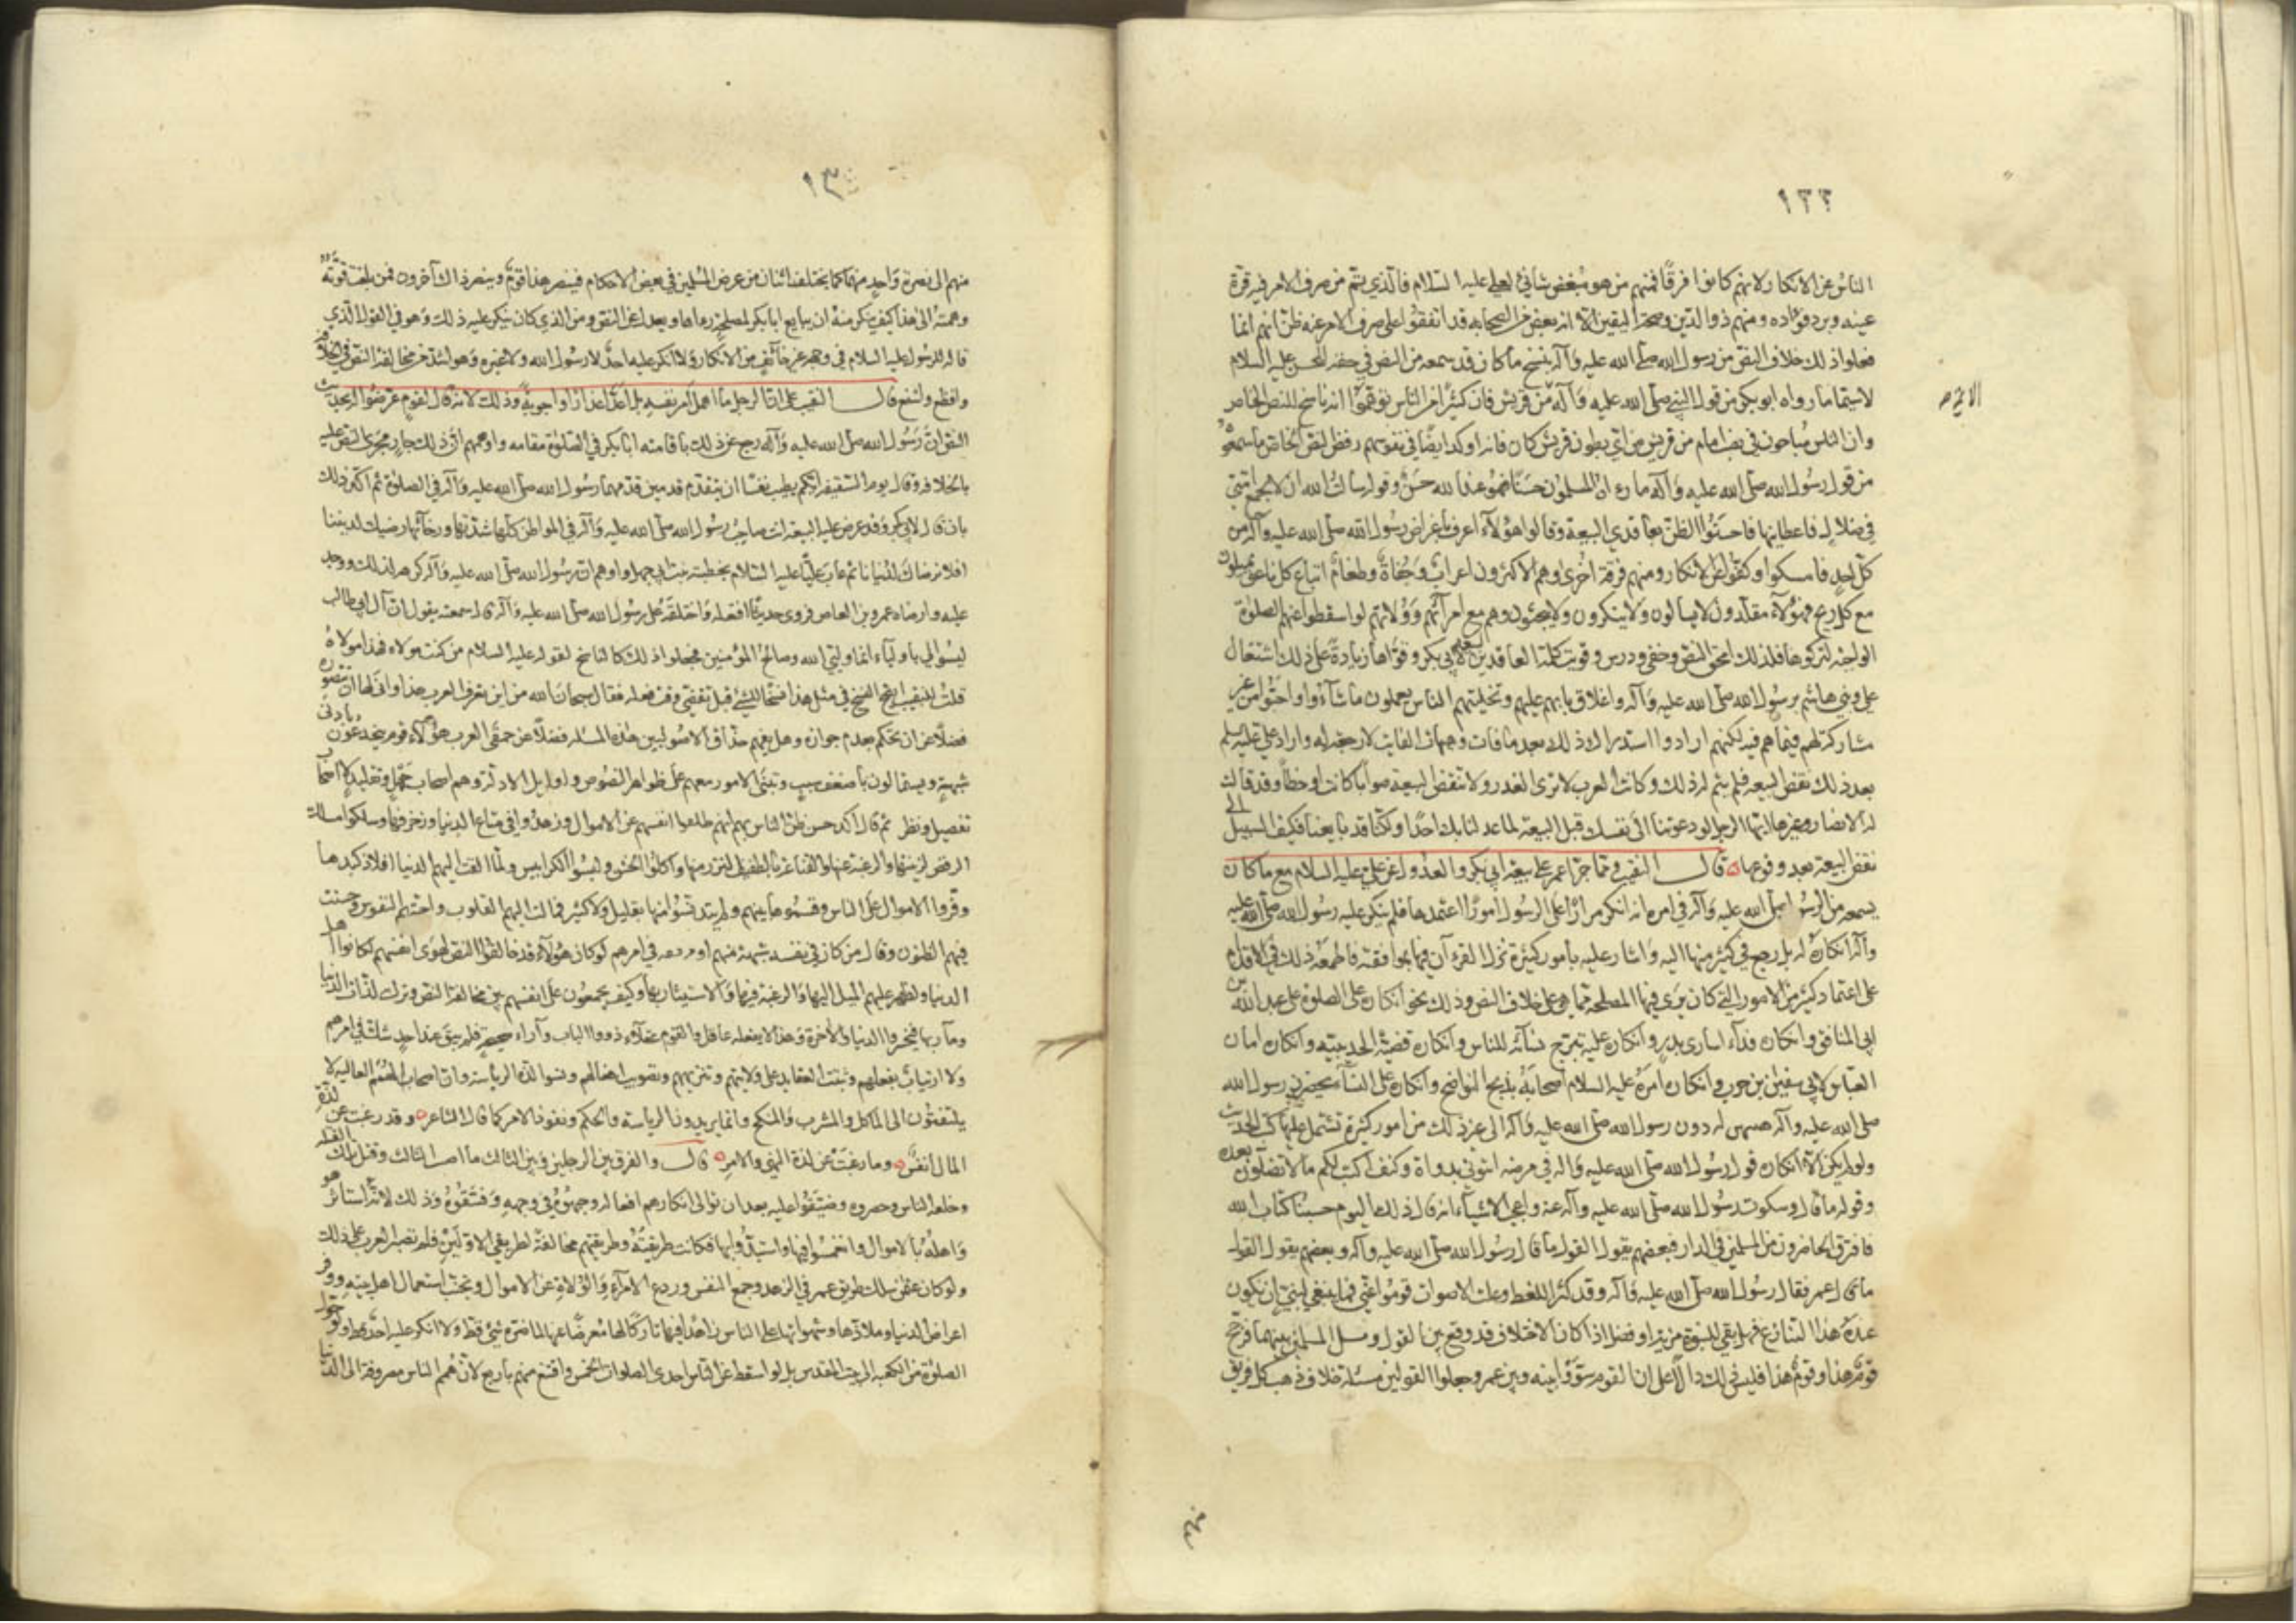 ١٣٢
الناس عن الانكار لانهم كانوا فرقًا فمنهم من هو مُبغض شانئ لعلي عليه السلام فالذي يتم من صرف الامر فيه قرة
عينه وبرد فؤاده ومنهم ذو الدين وصحة اليقين الا انه بعض الصحابه قد اتفقوا على صرف الامر عنه ظن انهم انما
فعلوا ذلك خلاف النص من رسول الله صلى الله عليه وآله ينسخ ما كان قد سمعه من النص في عليه السلام
لاسيما ما رواه ابو بكر من قول النبي صلى الله عليه وآله من قريش فان كثيرًا من الناس توهموا انه ناسخ للنص الخاص
الائمة صح
وان الناس مُباحون في نصب امام من قريش من اي بطون قريش كان فانه اوكد ايضًا في نفوسهم رفض النص الخاص ما سمعوه
من قول رسول الله صلى الله عليه وآله ما رءاه المسلمون حسنًا فهو عند الله حسن وقوله سالت الله ان لا يجمع امتي
في ضلال فاعطانيها فاحسنوا الظن بعاقدي البيعة وقالوا هؤلاء اعرف باغراض رسول الله صلى الله عليه وآله من
كل احد فامسكوا وكفوا عن الانكار ومنهم فرقة اخرى وهم الاكثرون اعراب وجفاة وطغام اتباع كل ناعق يميلون
مع كل ريح فهؤلاء مقلدون لا يسالون ولا ينكرون ولا يبحثون وهم مع امرآئهم وولاتهم لو اسقطوا عنهم الصلوة
الواجبة لتركوها فلذلك امحق النص وخفي ودرس وقويت كلمة العاقدين لبيعة ابي بكر وقواها زيادة على ذلك اشتغال
علي وبني هاشم برسول الله صلى الله عليه وآله واغلاق بابهم عليهم وتخليتهم الناس يعملون ما شاءوا واحبوا من غير
مشاركة لهم فيما هم فيه لكنهم ارادوا استدراك ذلك بعد ما فات وهيهات الفايت لا رجعة له واراد علي عليه السلم
بعد ذلك نقض البيعه فلم يتم له ذلك وكانت العرب لا ترى الغدر ولا تنقض البيعة صوابًا كانت او خطأ وقد قالت
له الانصار وغيرها ايها الرجل لو دعوتنا الى نفسك قبل البيعة لما عدلنا بك احدًا ولكنا قد بايعنا فكيف السبيل الى
نقض البيعة بعد وقوعها ٥ قال النقيب ومما جرّأ عمر على بيعة ابي بكر والعدول عن علي عليه السلام مع ما كان
يسمعه من الرسول صلى الله عليه وآله في امره انه انكر مرارًا على الرسول امورًا اعتمدها فلم ينكر عليه رسول الله صلى الله عليه
وآله انكاره له بل رجع في كثير منها اليه واشار عليه بامور كثيرة نزل القرءآن فيها بموافقته فاطمعه ذلك في الاقدام
على اعتماد كثير من الامور التي كان يرى فيها المصلحة مما هي على خلاف النص وذلك نحو انكاره على الصلوة على عبد الله بن
ابي المنافق وانكاره فداء اسارى بدر وانكاره عليه تبرج نسائه للناس وانكاره قضية الحديبيه وانكاره امان
العباس لابي سفين بن حرب وانكاره امره عليه السلام اصحابه بذبح النواضح وانكاره على النساء بحضرة رسول الله
صلى الله عليه وآله هيبتهن له دون رسول الله صلى الله عليه وآله الى غير ذلك من امور كثيرة تشتمل عليها كتب الحديث
ولو لم يكن الا انكاره قول رسول الله صلى الله عليه واله في مرضه ائتوني بدواة وكتف اكتب لكم ما لا تضلون بعده
وقوله ما قال وسكوت رسول الله صلى الله عليه وآله عنه واعجب الاشياء انه قال ذلك اليوم حسبنا كتاب الله
فافترق الحاضرون من المسلمين في الدار فبعضهم يقول القول ما قال رسول الله صلى الله عليه وآله وبعضهم يقول القول
ما قال عمر فقال رسول الله صلى الله عليه وآله وقد كثر اللغط وعلت الاصوات قوموا عني فما ينبغي لنبي ان يكون
عنده هذا التنازع فهل بقي للنبوة مزية او فضل اذا كان الاختلاف قد وقع بين القولين وميل المسلمون بينهما فرجح
قوم هذا وقوم هذا فليس ذلك دالًا على ان القوم سووا بينه وبين عمر وجعلوا القولين مسئلة خلاف ذهب كل فريق
١٣
منهم الى نصرة واحد منهما كما يختلف اثنان من عرض المسلمين في بعض الاحكام فينصر هذا قوم وينصر ذاك آخرون فمن بلغت قوته
وهمته الى هذا كيف ينكر منه ان يبايع ابا بكر لمصلحة رءاها ويعدل عن النص ومن الذي كان ينكر عليه ذلك وهو في القول الذي
قاله للرسول عليه السلام في وجهه غير خائف من الانكار ولا انكر عليه احد لا رسول الله ولا غيره وهو اشد من مخالفة النص في الخلافة
وافظع واشنع قال النقيب على ان الرجل ما اهمل امر نفسه بل اعد اعذارًا واجوبة وذلك لانه قال لقوم عرضوا له بحديث
النص ان رسول الله صلى الله عليه وآله رجع عن ذلك باقامته ابا بكر في الصلوة مقامه واوهمهم ان ذلك جار مجرى النص عليه
بالخلافه وقال يوم السقيفه ايكم يطيب نفسًا ان يتقدم قدمين قدمهما رسول الله صلى الله عليه وآله في الصلوة ثم اكد ذلك
بان قال لابي بكر وقد عرض عليه البيعة انت صاحب رسول الله صلى الله عليه وآله في المواطن كلها شدتها ورخائها رضيك لديننا
افلا نرضاك لدنيانا ثم عاب عليًا عليه السلام بخطبته بنت ابي جهل واوهم ان رسول الله صلى الله عليه وآله كرهه لذلك ووجد
عليه وارضاه عمرو بن العاص فروى حديثًا افتعله واختلقه على رسول الله صلى الله عليه وآله قال سمعته يقول ان آل ابي طالب
ليسوا لي باولياء انما وليي الله وصالح المؤمنين فجعلوا ذلك كالناسخ لقوله عليه السلام من كنت مولاه فهذا مولاه
قلت للنقيب ايصح النسخ في مثل هذا اليس هذا نسخًا للشيء قبل تقضي وقت فعله فقال سبحان الله من اين تعرف العرب هذا وانى لها ان تتصوره
فضلًا عن ان تحكم بعدم جوازه وهل يفهم حذاق الاصوليين هذه المسئله فضلًا عن حمقى العرب هؤلاء قوم ينخدعون بادنى
شبهة ويستمالون باضعف سبب وتبنى الامور معهم على ظواهر النصوص واوايل الادلة وهم اصحاب جهل وتقليد لا اصحاب
تفصيل ونظر ثم قال اكد حسن ظن الناس بهم انهم ظلعوا انفسهم عن الاموال وزهدوا في متاع الدنيا وزخرفها وسلكوا مسالك
الرفض لزينتها والرغبة عنها والقناعة بالطفيف النزر منها واكلوا الخشن ولبسوا الكرابيس ولما القت اليهم الدنيا افلاذ كبدها
وفرقوا الاموال على الناس وقسموها بينهم ولم يتدنسوا منها بقليل ولا كثير فمالت اليهم القلوب واحبتهم النفوس وحسنت
فيهم الظنون وقال من كان في نفسه شبهة منهم او وقفه في امرهم لو كان هؤلاء قد خالفوا النص لهوى انفسهم لكانوا اهل
الدنيا ولظهر عليهم الميل اليها والرغبة فيها والاستيثار بها وكيف يجمعون على انفسهم بين مخالفة النص وترك لذات الدنيا
ومآربها فيخسروا الدنيا والآخرة وهذا لا يفعله عاقل والقوم عقلاء ذووا الباب وآراء صحيحة فلم يبق عند احد شك في امرهم
ولا ارتياب بفعلهم وثبتت العقايد على ولايتهم وتنزيههم وتصويب افعالهم ونسوا لذة الرياسة وان اصحاب الهمم العاليه لا
يلتفتون الى الماكل والمشرب والمنكح وانما يريدون الرياسة والحكم ونفوذ الامر كما قال الشاعر ٥ وقد رغبت عن لذة
المال انفسٌ ٥ وما رغبت عن لذة النهي والامر ٥ قال والفرق بين الرجلين وبين الثالث ما اصيب الثالث وقتل تلك القتله
وخلعه الناس وحصروه وضيقوا عليه بعد ان توالى انكارهم افعاله وجبهوه في وجهه وفسقوه وذلك لانه استاثر هو
واهله بالاموال وانغمسوا فيها واستبدوا بها فكانت طريقته وطريقتهم مخالفة لطريقي الاولين فلم تصبر العرب على ذلك
ولو كان عثمن سلك طريق عمر في الزهد وجمع النفس وردع الامراء والولاة عن الاموال وتجنب استعمال اهل بيته ووفر
اعراض الدنيا وملاذها وشهواتها على الناس زاهدًا فيها تاركًا لها مُعرضًا عنها لما ضره شيء قط ولا انكر عليه احد قط ولو حول
الصلوة من الكعبه الى بيت المقدس بل لو اسقط عن الناس احدى الصلوات الخمس واقتنع منهم باربع لان همم الناس مصروفة الى الدنيا